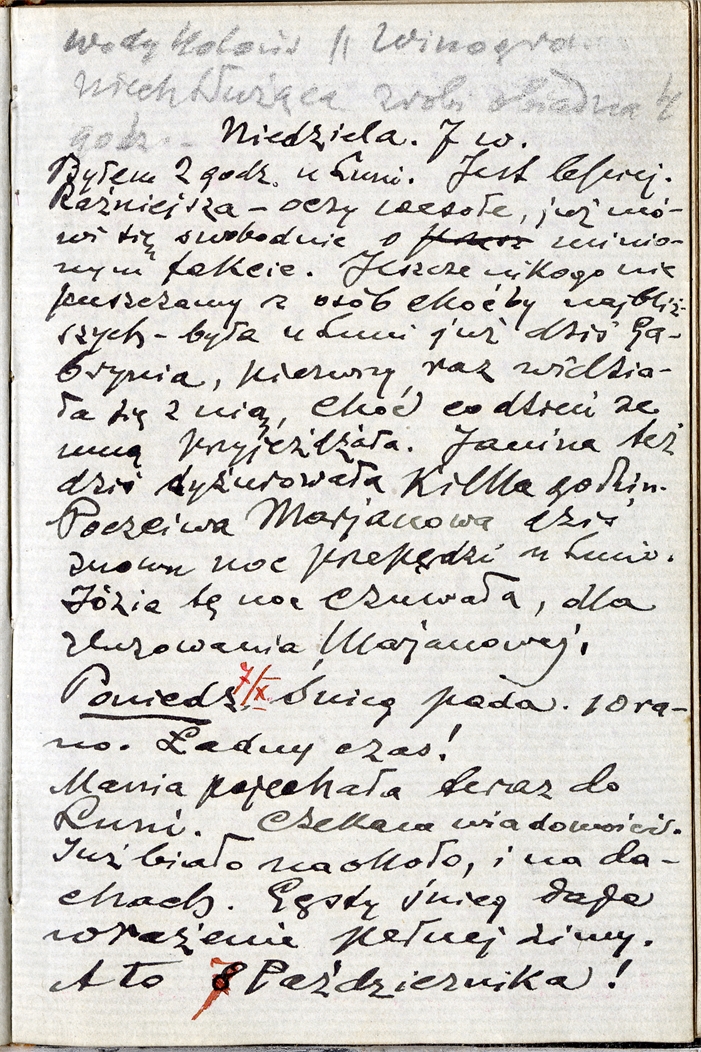 wody Kolońs || Winogro
niech służąca zrobi obiad na 4
godz. -
Niedziela. 7 w.
Byłem 2 godz. u Luni. Jest lepiej.
Raźniejsza – oczy wesołe, już mó-
wi się swobodnie o minio-
nym fakcie. Jeszcze nikogo nie
puszczamy z osób choćby najbliż-
szych – była u Luni już dziś Ga-
brynia, pierwszy raz widzia-
ła się z nią, choć codzień ze
mną przyjeżdżała. Janina też
dziś dyżurowała kilka godzin.
Poczciwa Marjanowa dziś
znowu noc przepędzi u Luni.
Józia tę noc czuwała, dla
zluzowania Marjanowej.
Poniedz. 7/X Śnieg pada. 10 ra-
no. Ładny czas!
Mania pojechała teraz do
Luni. Czekam wiadomości.
Już biało naokoło, i na da-
chach. Gęsty śnieg daje
wrażenie pełnej zimy.
A to 7 Października!